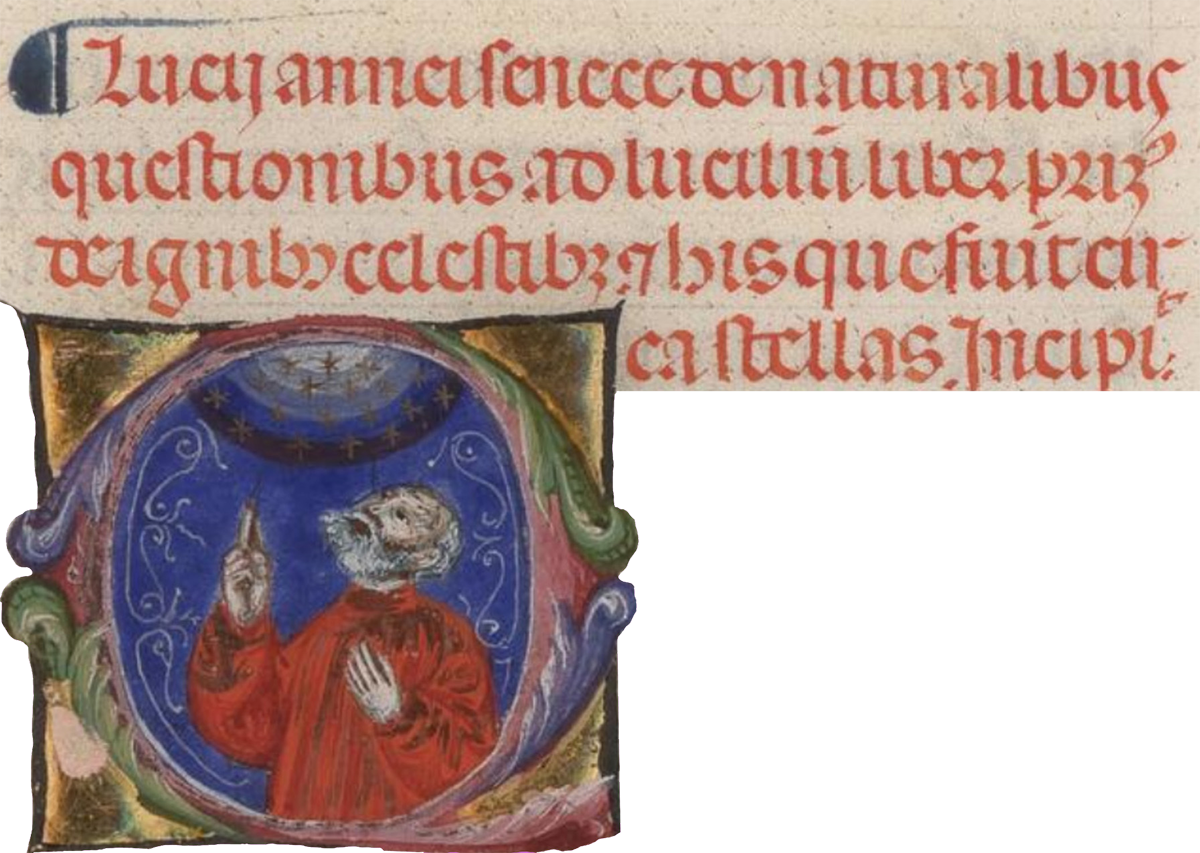 ¶ Lucij annei senece de naturalibus
questionibus ad luciliū liber prim᷒
de ignibꝫ celestibꝫ ⁊ his que fiūt cir
ca stellas. Incipit